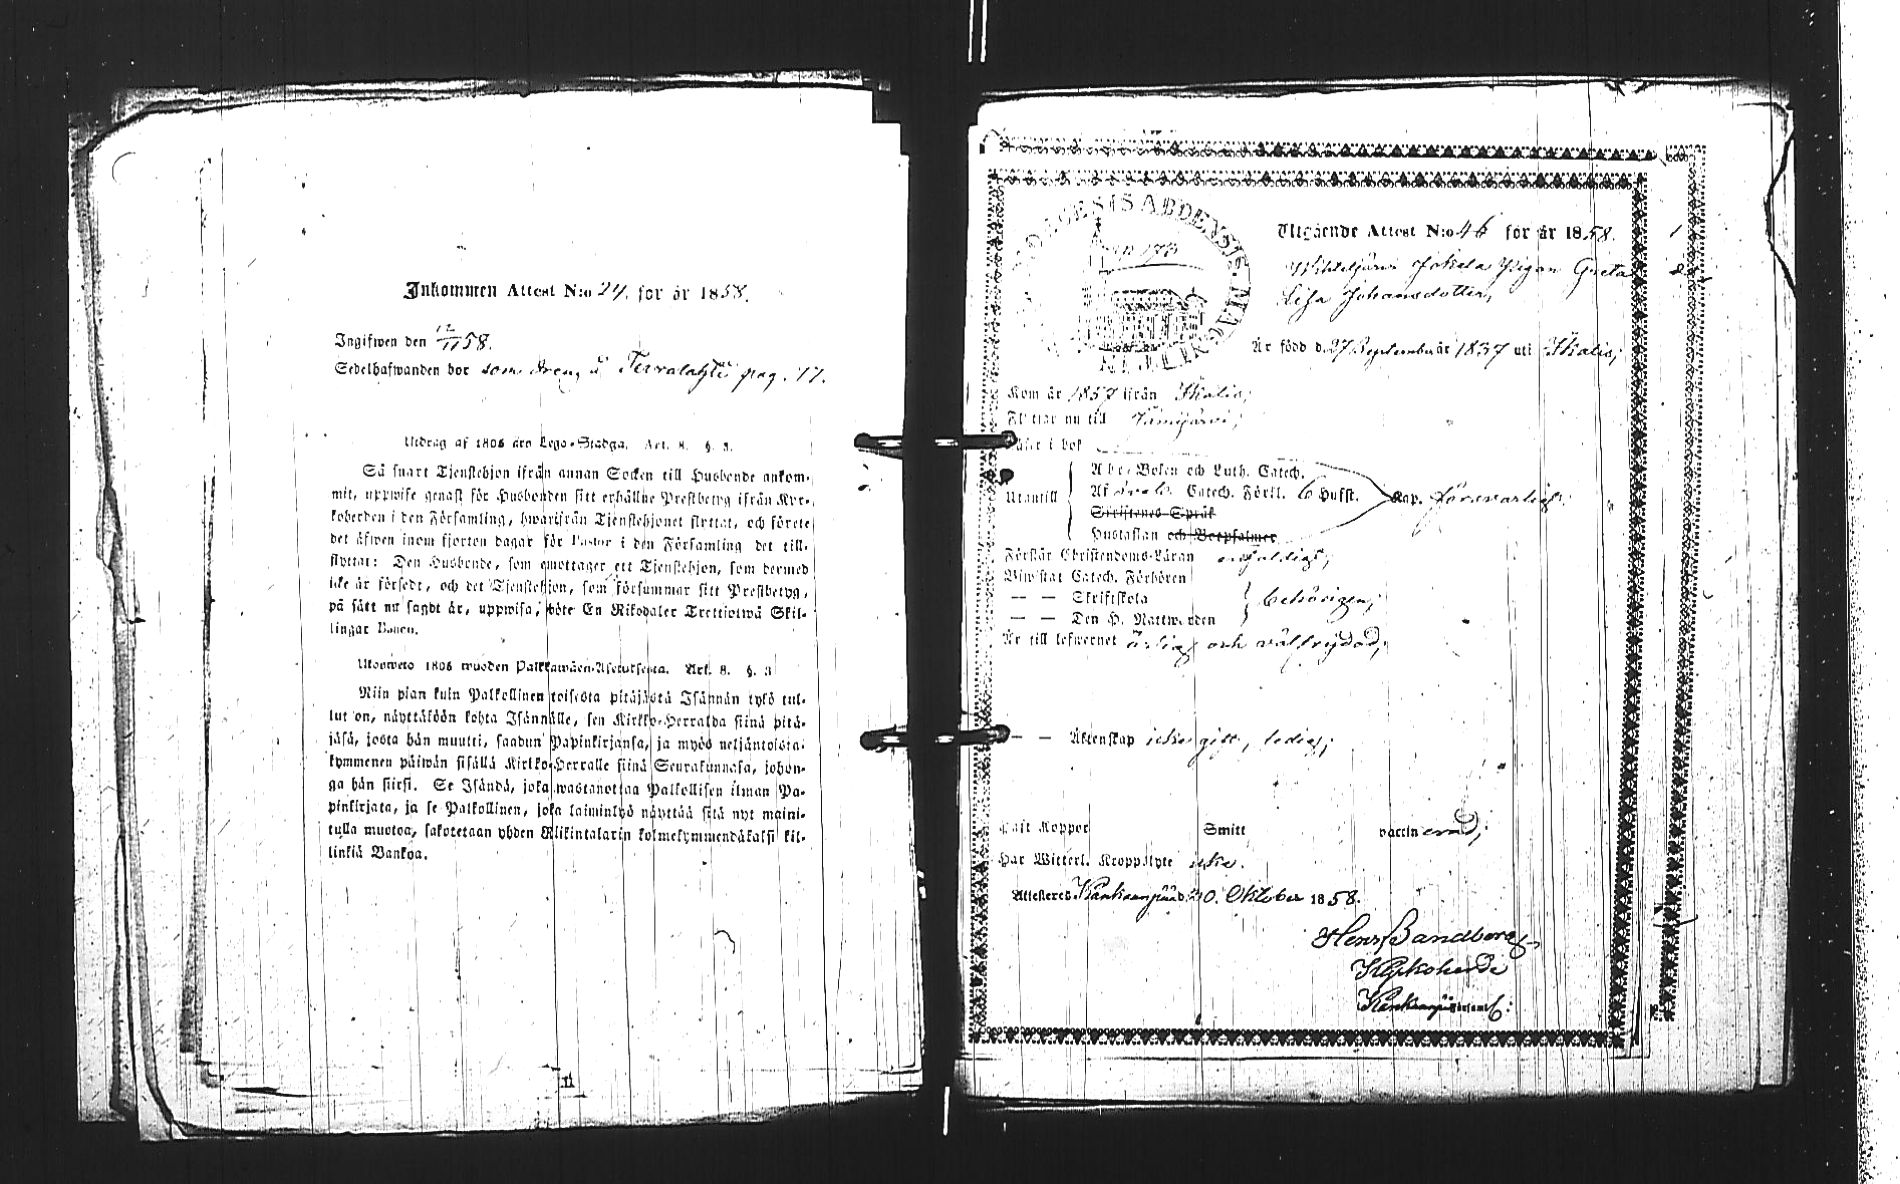 Inkommen Attest N:o 24. för år 1858.
Ingifwen den 12/11 58.
Sedelhafwanden bor som dreng å pag. 17.
Utdrag af 1805 års Lego-Stadga. Art. 8. §. 3.
Så snart Tjenstehjon ifrån annan Socken till Husbonde ankom-
mit, uppwise genast för Husbonden sitt erhållne Prestbetyg ifrån Kyr-
koherden i den Församling, hwarifrån Tjenstehjonet flyttat, och förete
det äfwen inom fjorton dagar för Pastor i den Församling det till-
flyttat: Den Husbonde, som emottager ett Tjenstehjon, som dermed
icke är försedt, och det Tjenstehjon, som försummar sitt Prestbetyg,
på sätt nu sagdt är, uppwisa, böte En Riksdaler Trettiotwå Skil-
lingar Banco.
Ulosweto 1805 wuoden Palkkawäen-Asetuksesta. Art. 8. §. 3
Niin pian kuin Palkollinen toisesta pitäjästä Isännän tykö tul-
lut on, näyttäköön kohta Isännälle, sen Kirkko-Herralda siinä pitä-
jäsä, josta hän muutti, saadun Papinkirjansa, ja myös neljäntoista-
kymmenen päiwän sisällä Kirkko-Herralle siinä Seurakunnasa, johon-
ga hän siirsi. Se Isändä, joka wastanottaa Palkollisen ilman Pa-
pinkirjata, ja se Palkollinen, joka laiminlyö näyttää sitä nyt maini-
tulla muotoa, sakotetaan yhden Riikintalarin kolmekymmendäkaksi kil-
linkiä Bankoa.
Utgående Attest N:o 46 för år 1858.
Jokela Pigan Greta
Lisa Johansdotter,
Är född d. 27 September år 1837 uti Ikalis;
Kom år 1857 ifrån Ikalis;
Flyttar nu till Jämijärvi;
Läser i bok
Utantill
A b c-Boken och Luth. Catech.
Af Catech. Förkl. 6 Hufst. Kap. försvarligt;
Skriftenes Språk
Hustaflan och Botpsalmer
Förstår Christendoms-Läran enfaldigt;
Biwistat Catech. Förhören
— — Skriftskola behörigen;
— — Den H. Nattwarden
Är till lefwernet ärlig och välfrejdad;
— — Äktenskap icke gift, ledig;
Haft Koppor Smitt vaccinerad;
Har Witterl. Kroppslyte icke.
Attesteres Kankaanpää d. 20. Oktober 1858.
Sandberg
Kyrkoherde